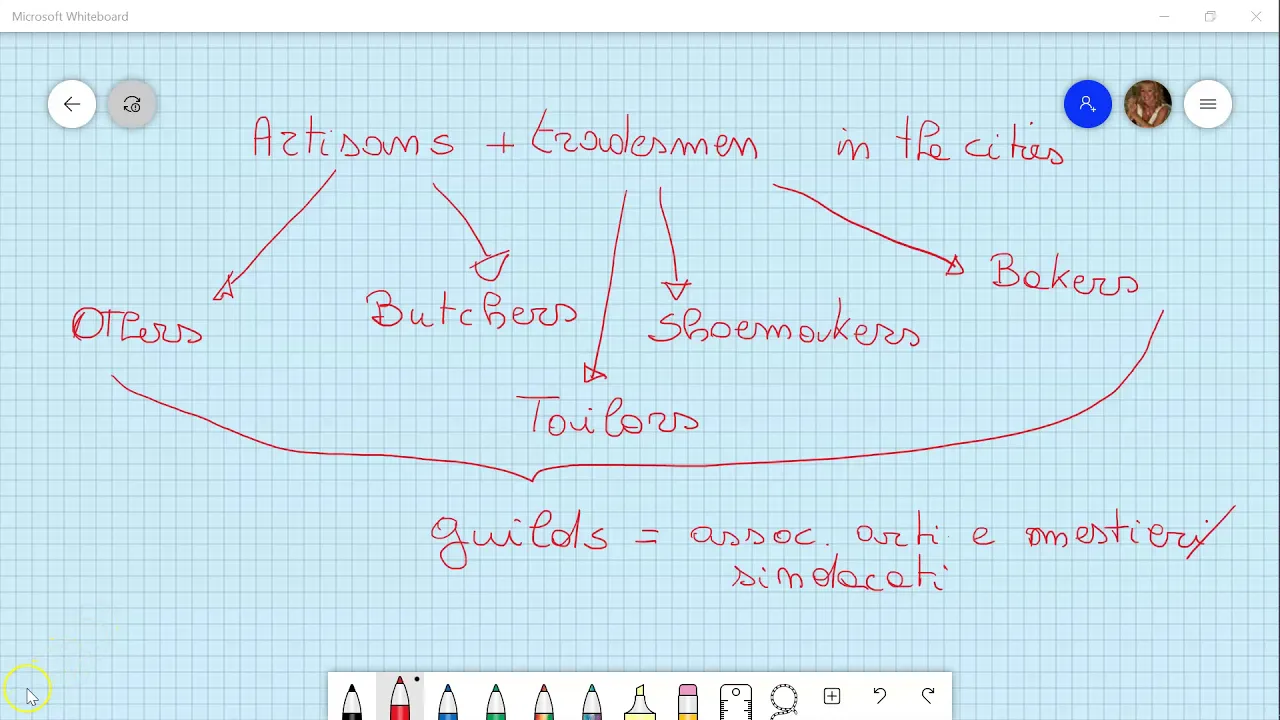 Microsoft Whiteboard
Artisans + tradesmen in the cities
Others Butchers Shoemakers Bakers
Tailors
guilds = assoc. arti e mestieri/
sindacati